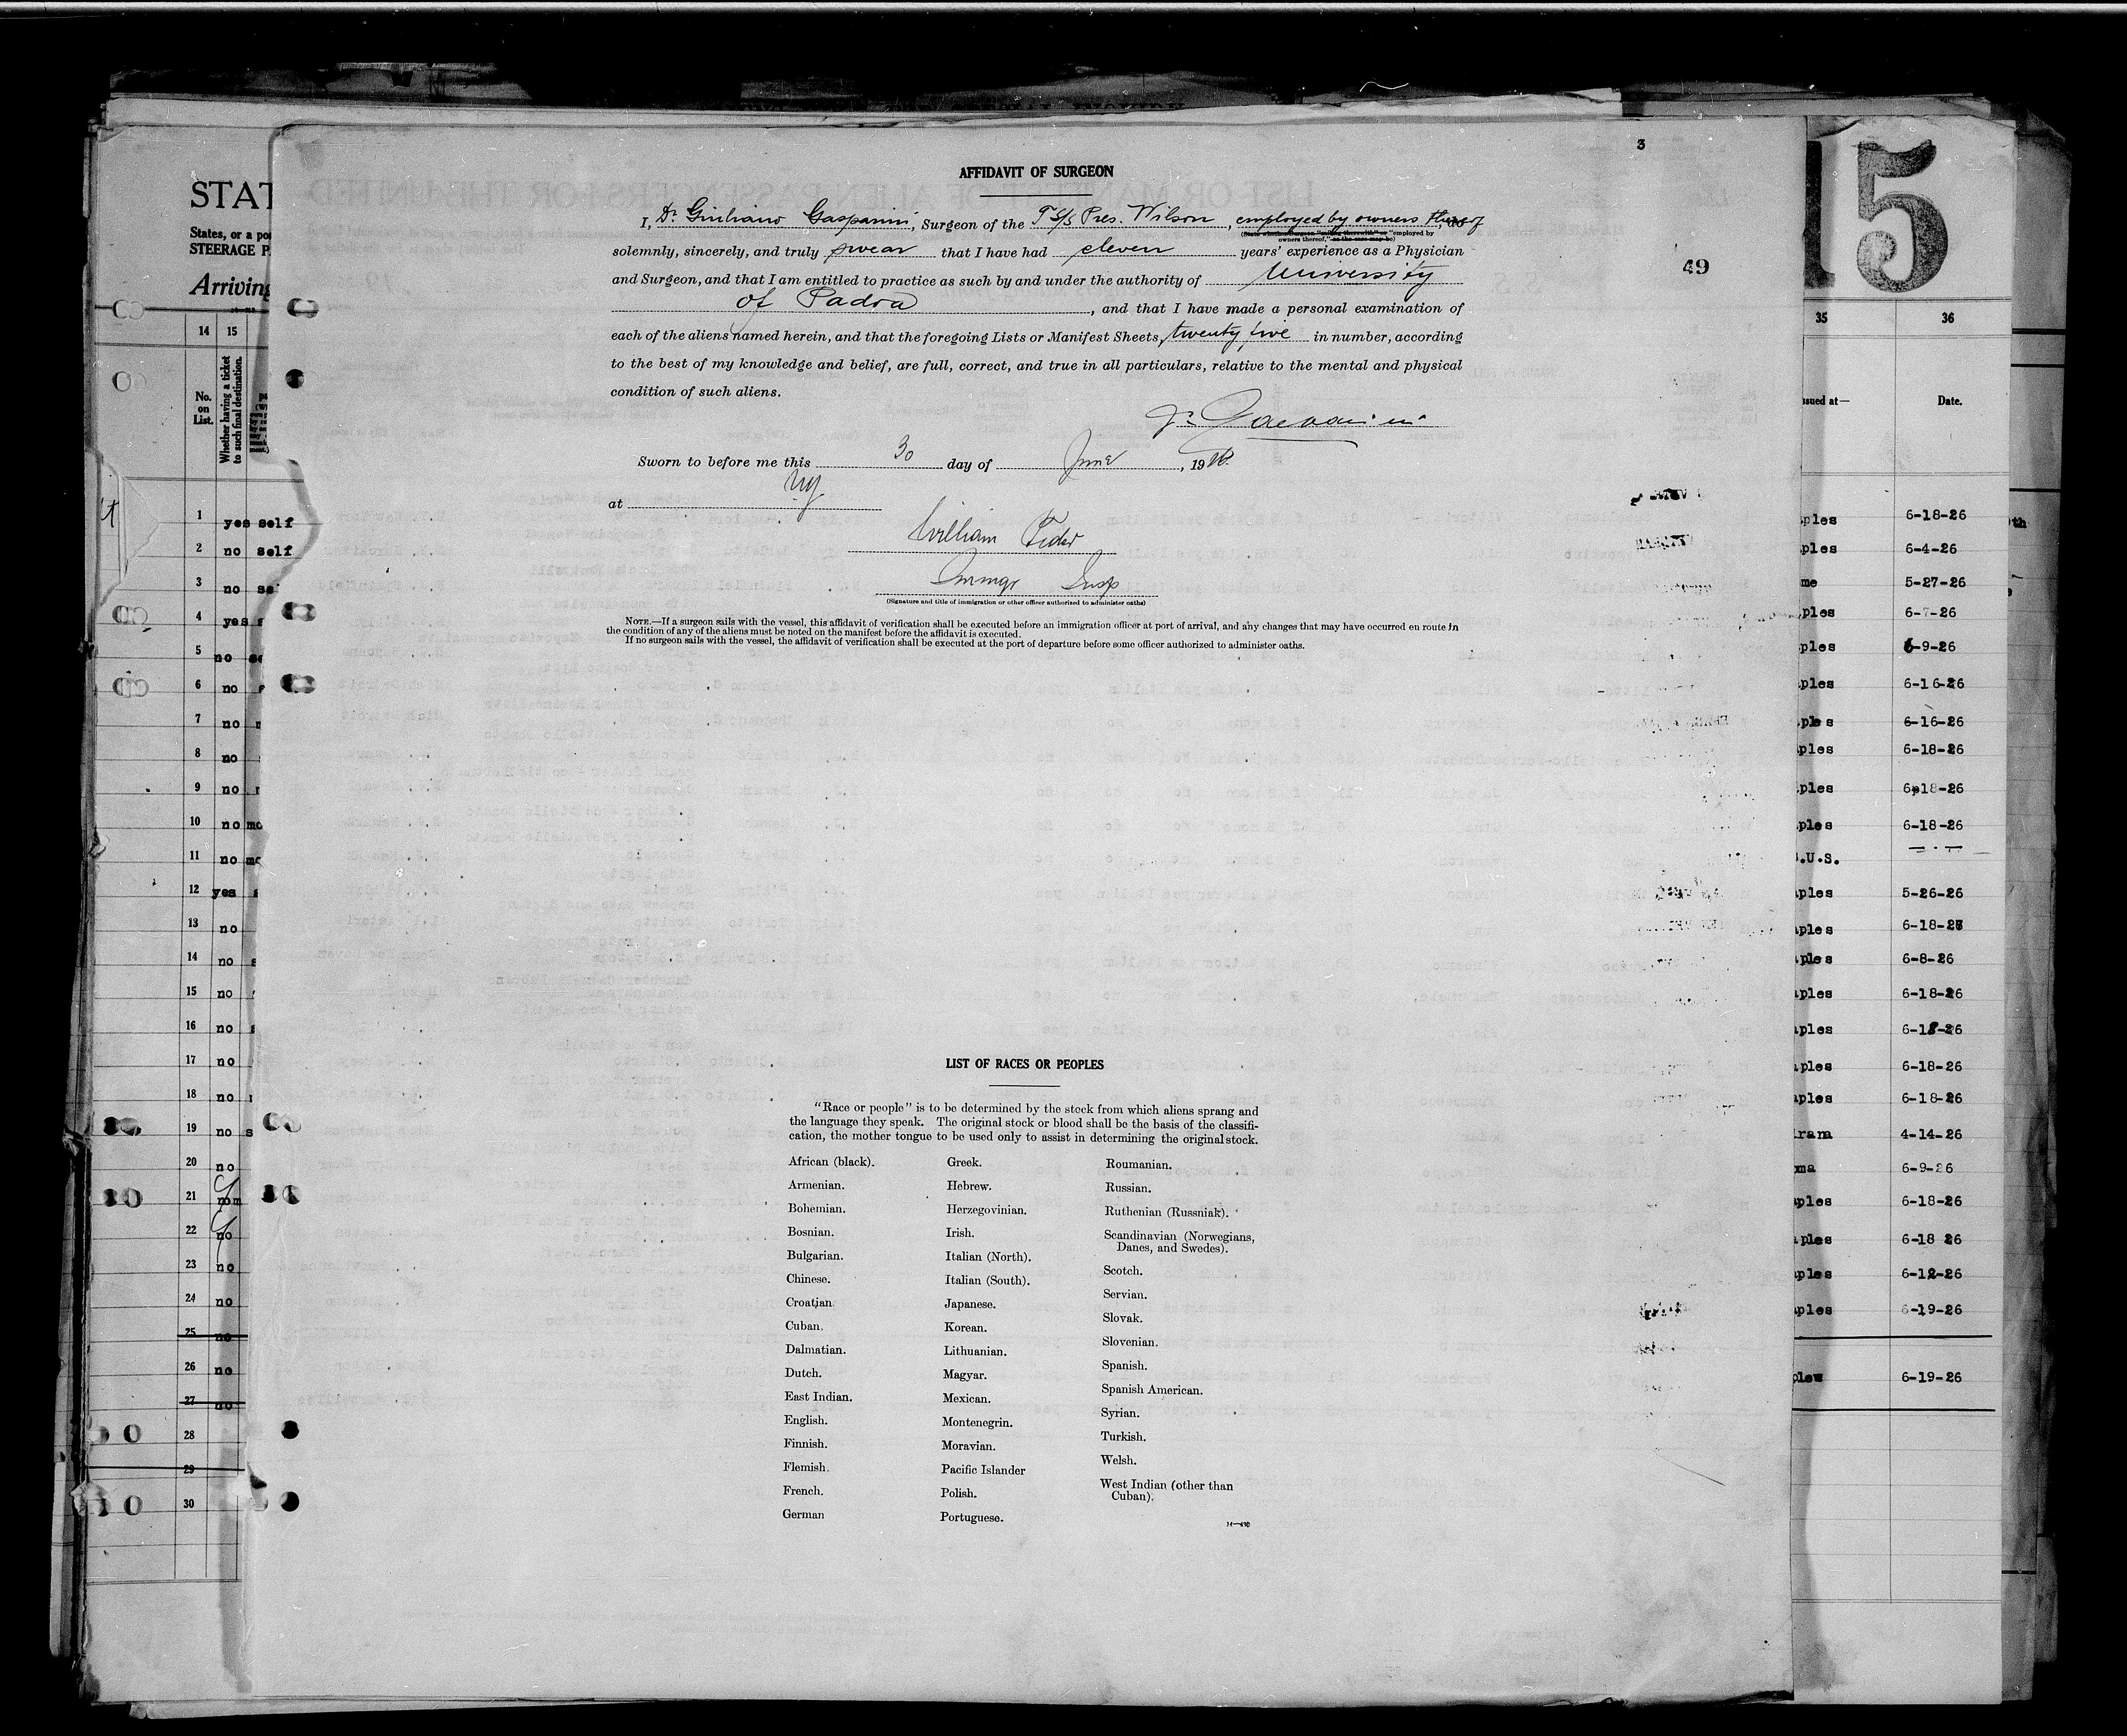 3
AFFIDAVIT OF SURGEON
I, Dr. Giuliano Gasparini, Surgeon of the T S/S Pres. Wilson, employed by owners thereof
owners thereof," as the case may be)
solemnly, sincerely, and truly swear that I have had eleven years' experience as a Physician
and Surgeon, and that I am entitled to practice as such by and under the authority of University
of Padova, and that I have made a personal examination of
each of the aliens named herein, and that the foregoing Lists or Manifest Sheets, twenty five in number, according
to the best of my knowledge and belief, are full, correct, and true in all particulars, relative to the mental and physical
condition of such aliens.
Sworn to before me this 30 day of June, 19
at NY
William
Immgr Insp
(Signature and title of immigration or other officer authorized to administer oaths)
NOTE.—If a surgeon sails with the vessel, this affidavit of verification shall be executed before an immigration officer at port of arrival, and any changes that may have occurred en route in
the condition of any of the aliens must be noted on the manifest before the affidavit is executed.
If no surgeon sails with the vessel, the affidavit of verification shall be executed at the port of departure before some officer authorized to administer oaths.
49
LIST OF RACES OR PEOPLES
"Race or people" is to be determined by the stock from which aliens sprang and
the language they speak. The original stock or blood shall be the basis of the classifi-
cation, the mother tongue to be used only to assist in determining the original stock.
African (black).
Armenian.
Bohemian.
Bosnian.
Bulgarian.
Chinese.
Croatian
Cuban.
Dalmatian.
Dutch.
East Indian.
English.
Finnish.
Flemish.
French.
German
Greek.
Hebrew.
Herzegovinian.
Irish.
Italian (North).
Italian (South).
Japanese.
Korean.
Lithuanian.
Magyar.
Mexican.
Montenegrin.
Moravian.
Pacific Islander
Polish.
Portuguese.
Roumanian.
Russian.
Ruthenian (Russniak).
Scandinavian (Norwegians,
Danes, and Swedes).
Scotch.
Servian.
Slovak.
Slovenian.
Spanish.
Spanish American.
Syrian.
Turkish.
Welsh.
West Indian (other than
Cuban).
STAT
States, or a po
STEERAGE P
Arriving
14 15
No.
on
List.
Whether having a ticket
to such final destination.
1 yes self
2 no self
3 no se
4 yes s
5 no se
6 no
7 no
8 no
9 no
10 no mo
11 no mo
12 yes
13 no
14 no s
15 no
16 no s
17 no
18 no
19 no s
20 no
21 no m
22 no
23 no
24 no
25 no
26 no
27 no
28
29
30
15
35 36
ssued at— Date.
ples 6-18-26
ples 6-4-26
me 5-27-26
ples 6-7-26
ples 6-9-26
ples 6-16-26
ples 6-16-26
ples 6-18-26
ples 6-18-26
ples 6-18-26
.U.S.
aples 5-26-26
aples 6-18-26
aples 6-8-26
aples 6-18-26
aples 6-18-26
aples 6-18-26
aples 6-18-26
ram 4-14-26
oma 6-9-26
aples 6-18-26
aples 6-18 26
aples 6-12-26
aples 6-19-26
ples 6-19-26